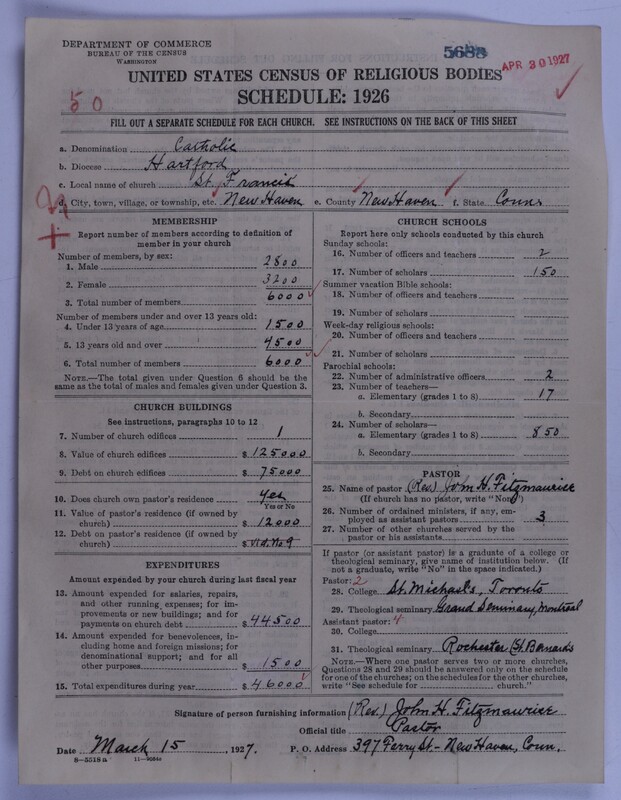 DEPARTMENT OF COMMERCE
BUREAU OF THE CENSUS
WASHINGTON
5688
APR 30 1927
UNITED STATES CENSUS OF RELIGIOUS BODIES
SCHEDULE: 1926
50
FILL OUT A SEPARATE SCHEDULE FOR EACH CHURCH. SEE INSTRUCTIONS ON THE BACK OF THIS SHEET
a. Denomination Catholic
b. Diocese Hartford
c. Local name of church St. Francis
d. City, town, village, or township, etc. New Haven e. County New Haven f. State Conn.
MEMBERSHIP
Report number of members according to definition of
member in your church
Number of members, by sex:
1. Male 2800
2. Female 3200
3. Total number of members 6000
Number of members under and over 13 years old:
4. Under 13 years of age 1500
5. 13 years old and over 4500
6. Total number of members 6000
NOTE.—The total given under Question 6 should be
same as the total of males and females given under Question 3.
CHURCH BUILDINGS
See instructions, paragraphs 10 to 12
7. Number of church edifices 1
8. Value of church edifices $ 125000
9. Debt on church edifices $ 75000
10. Does church own pastor's residence Yes
Yes or No
11. Value of pastor's residence (if owned by
church) $ 12000
12. Debt on pastor's residence (if owned by
church) $ vid. No 9
EXPENDITURES
Amount expended by your church during last fiscal year
13. Amount expended for salaries, repairs,
and other running expenses; for im-
provements or new buildings; and for
payments on church debt $ 44500
14. Amount expended for benevolences, in-
cluding home and foreign missions; for
denominational support; and for all
other purposes $ 1500
15. Total expenditures during year $ 46000
CHURCH SCHOOLS
Report here only schools conducted by this church
Sunday schools:
16. Number of officers and teachers 2
17. Number of scholars 150
Summer vacation Bible schools:
18. Number of officers and teachers
19. Number of scholars
Week-day religious schools:
20. Number of officers and teachers
21. Number of scholars
Parochial schools:
22. Number of administrative officers 2
23. Number of teachers—
a. Elementary (grades 1 to 8) 17
b. Secondary
24. Number of scholars—
a. Elementary (grades 1 to 8) 850
b. Secondary
PASTOR
25. Name of pastor (Rev.) John H. Fitzmaurice
(If church has no pastor, write "None")
26. Number of ordained ministers, if any, em-
ployed as assistant pastors 3
27. Number of other churches served by the
pastor or his assistants
If pastor (or assistant pastor) is a graduate of a college or
theological seminary, give name of institution below. (If
not a graduate, write "No" in the space indicated.)
Pastor: 2
28. College St. Michael's, Toronto
29. Theological seminary Grand Seminary, Montreal
Assistant pastor: 4
30. College
31. Theological seminary Rochester (St. Bernard's
NOTE.—Where one pastor serves two or more churches,
Questions 28 and 29 should be answered only on the schedule
for one of the churches; on the schedules for the other churches,
write "See schedule for church."
Signature of person furnishing information (Rev.) John H. Fitzmaurice
Official title Pastor
Date March 15, 1927. P. O. Address 397 Ferry St - New Haven, Conn.
8—5518a